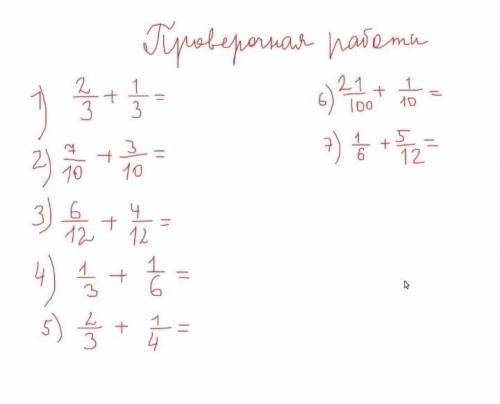 Проверочная работа
1) 2/3 + 1/3 =
2) 7/10 + 3/10 =
3) 6/12 + 4/12 =
4) 1/3 + 1/6 =
5) 2/3 + 1/4 =
6) 21/100 + 1/10 =
7) 1/6 + 5/12 =